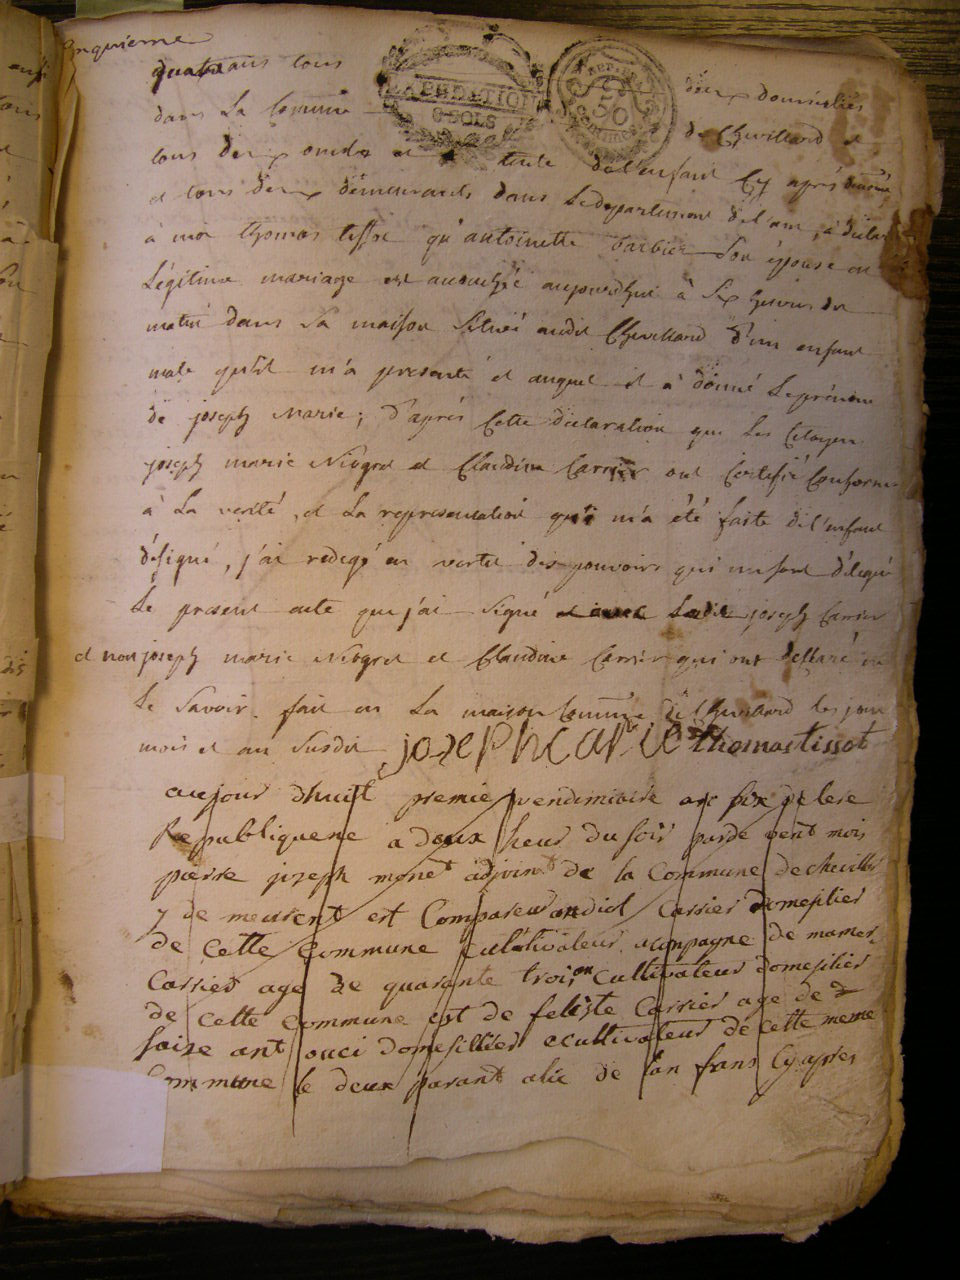 Cinquieme
quatre ans tous deux domiciliés
EXPEDITION
8 SOLS
50
Centimes
dans La Commune de Chevillard et
tous deux oncle et tante de l'enfant Cy après
et tous deux demeurants dans Le departement de l'ain, a déclaré
à moi thomas tissot qu'antoinette barbier Son épouse en
Légitime mariage est accouchée aujourdhui à Six heures du
matin dans Sa maison Située audit Chevillard d'un enfant
male qu'il m'a presenté et auquel il à donné Le prénom
de joseph Marie; d'après Cette declaration que Les Citoyens
joseph marie Niogret et Claudine Carrier ont Certifié Conforme
à La verité, et La representation qui m'a été faite de l'enfant
désigné, j'ai redigé en vertu des pouvoirs qui me sont délegué
Le present acte que j'ai Signé avec Ledit joseph Carrier
et non joseph marie Niogret et Claudine Carrier qui ont déclaré ne
Le Savoir. fait en La maison Commune de Chevillard les jour
mois et an Susdit joseph carrie thomas tissot
aujour dhuit premie vendimiaire an six de lere
Republiquene a deux heur du soir par de vent moi
pierre jozeph monet adjoint de la Commune de chevillar
y de meurent est Compareu andiol Carrier domesilier
de Cette Commune Cultivateur acompagne de mamer
Carrier age de quarante troi an Cultivateur domesilier
de Cette Commune est de feliste Carrier age de
saize ant ouci domesillier ecultivateur de Cette meme
Commune le deux parant alie de lan fans Cyapres